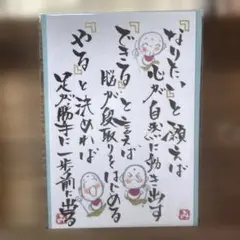 『なりたい』と願えば
心が自然に動き出す
『できる』と言えば
脳が段取りをはじめる
『やる』と決めれば
足が勝手に一歩前に出る